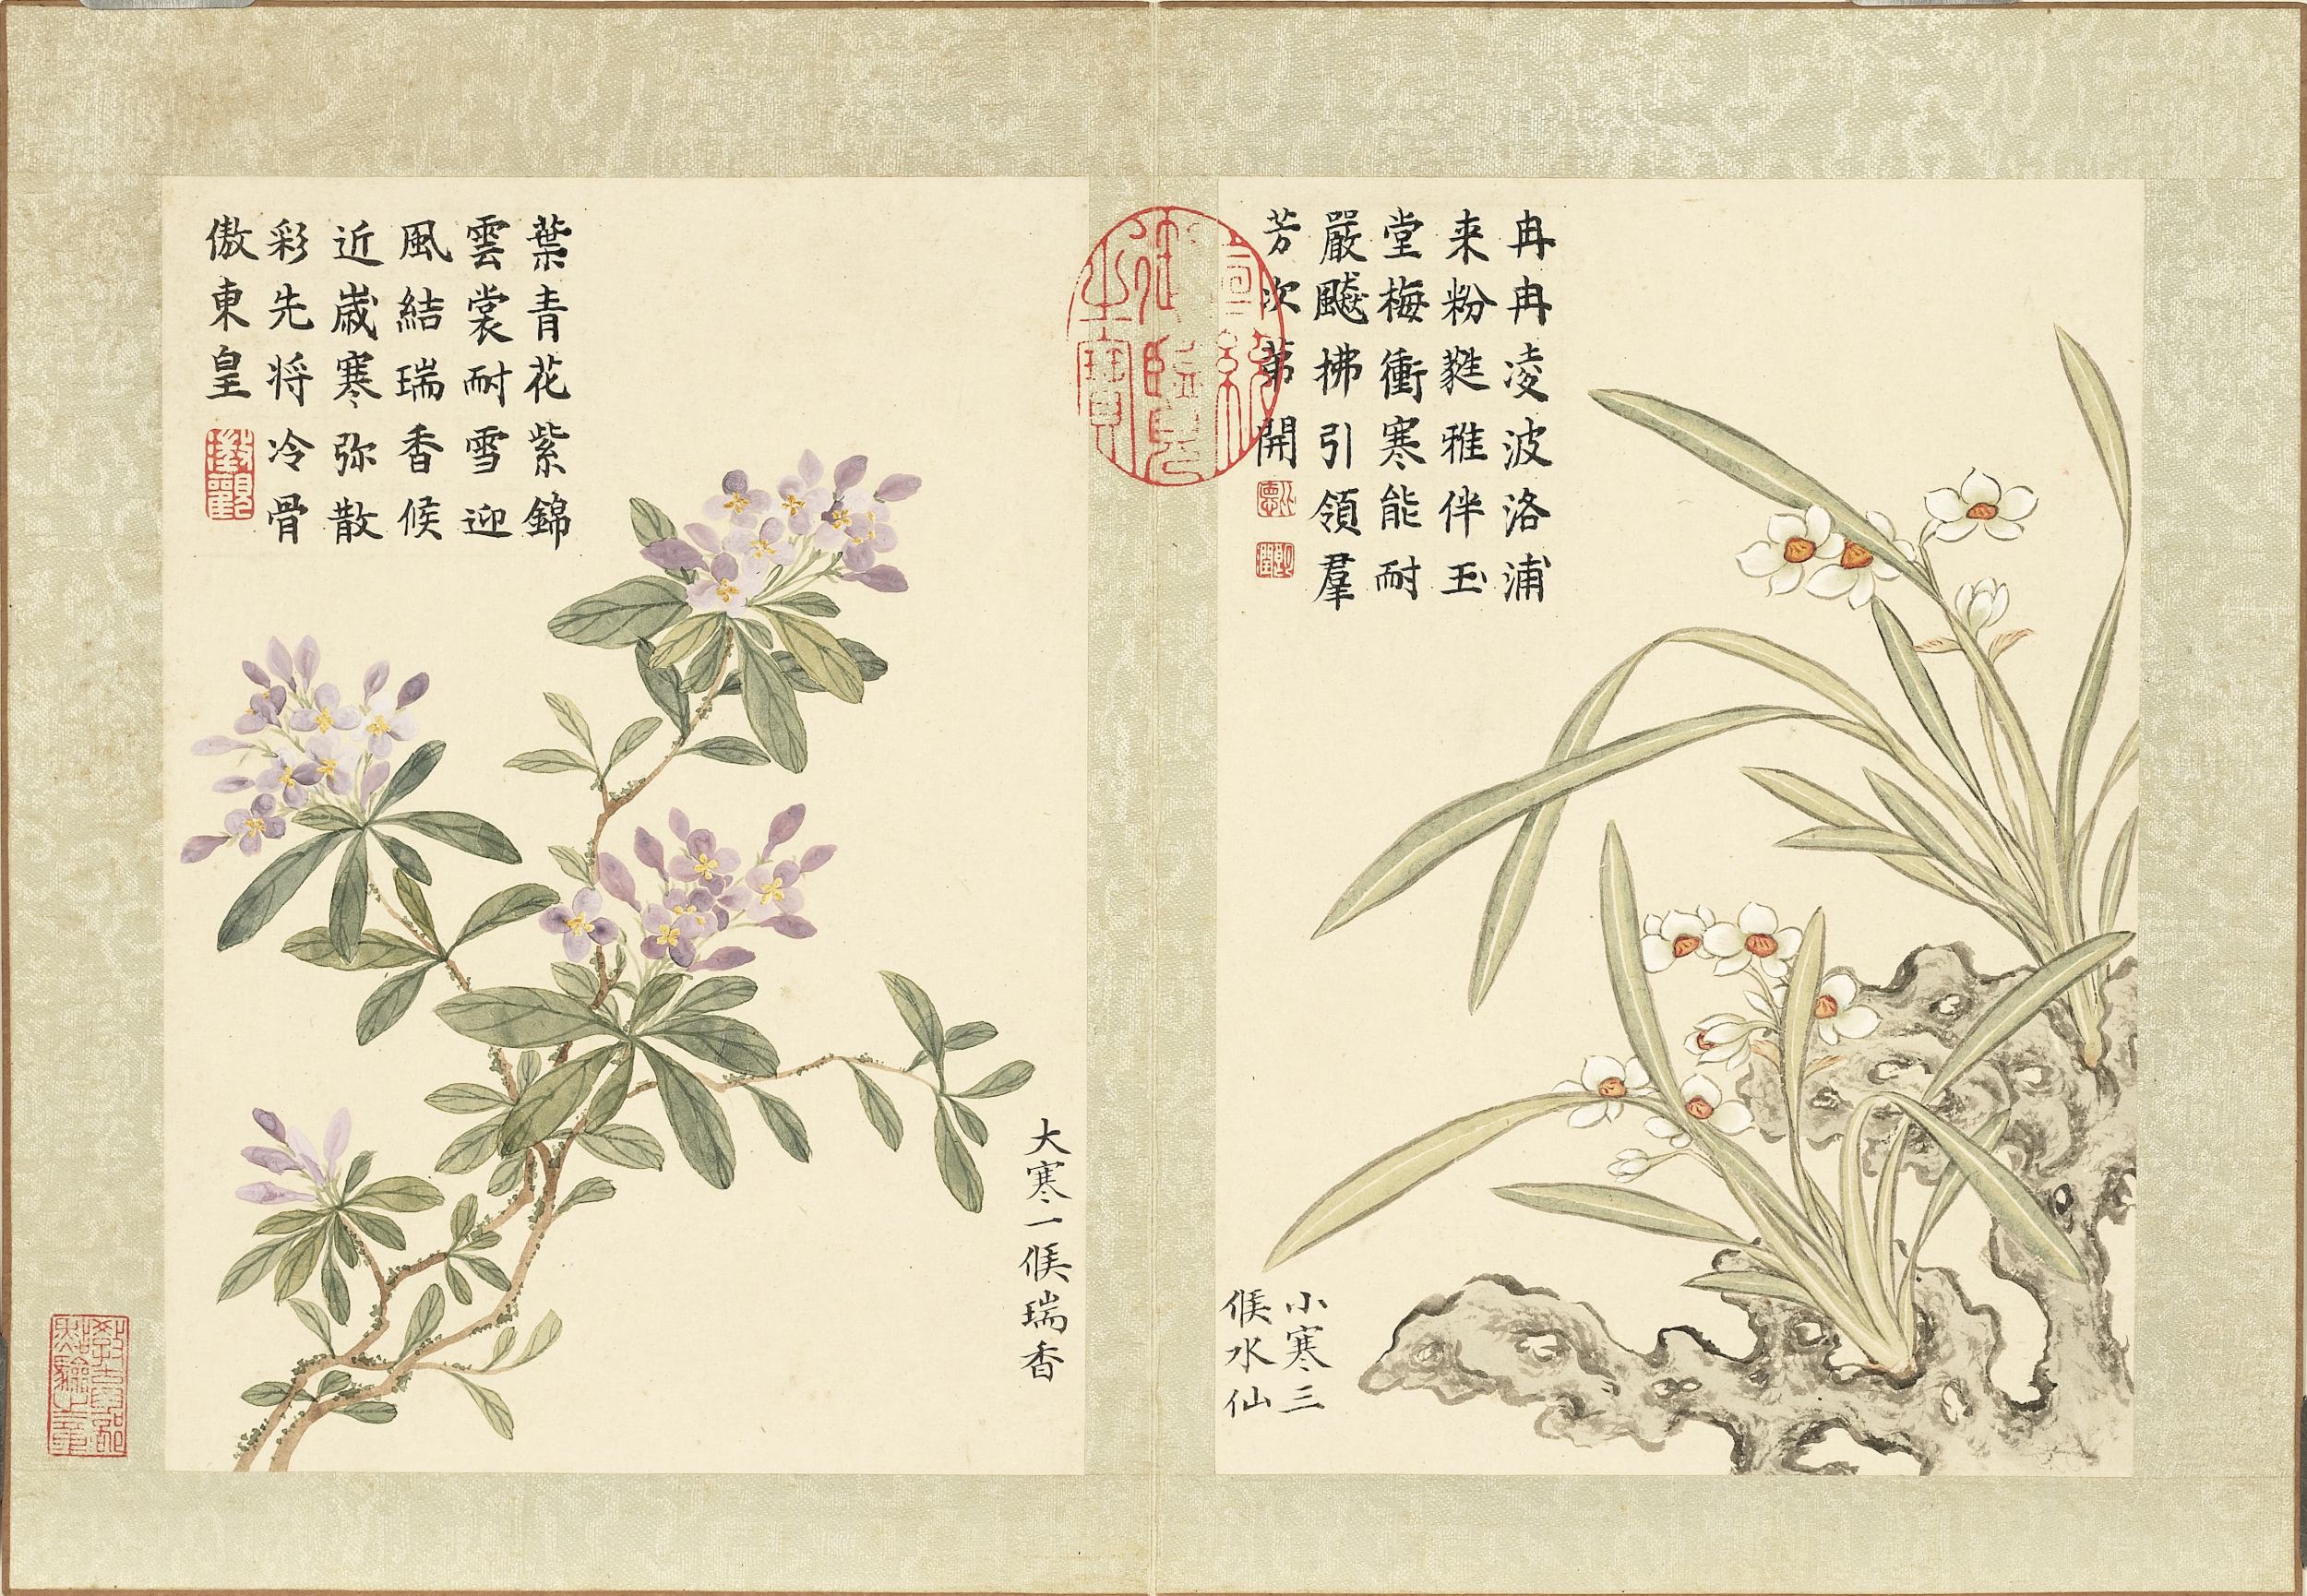 冉冉凌波洛浦
来粉甤雅伴玉
堂梅衝寒能耐
嚴飇拂引領羣
芳次第開
小寒三
候水仙
葉青花紫錦
雲裳耐雪迎
風結瑞香候
近歲寒弥散
彩先将冷骨
傲東皇
大寒一候瑞香
宣統御覽之寶